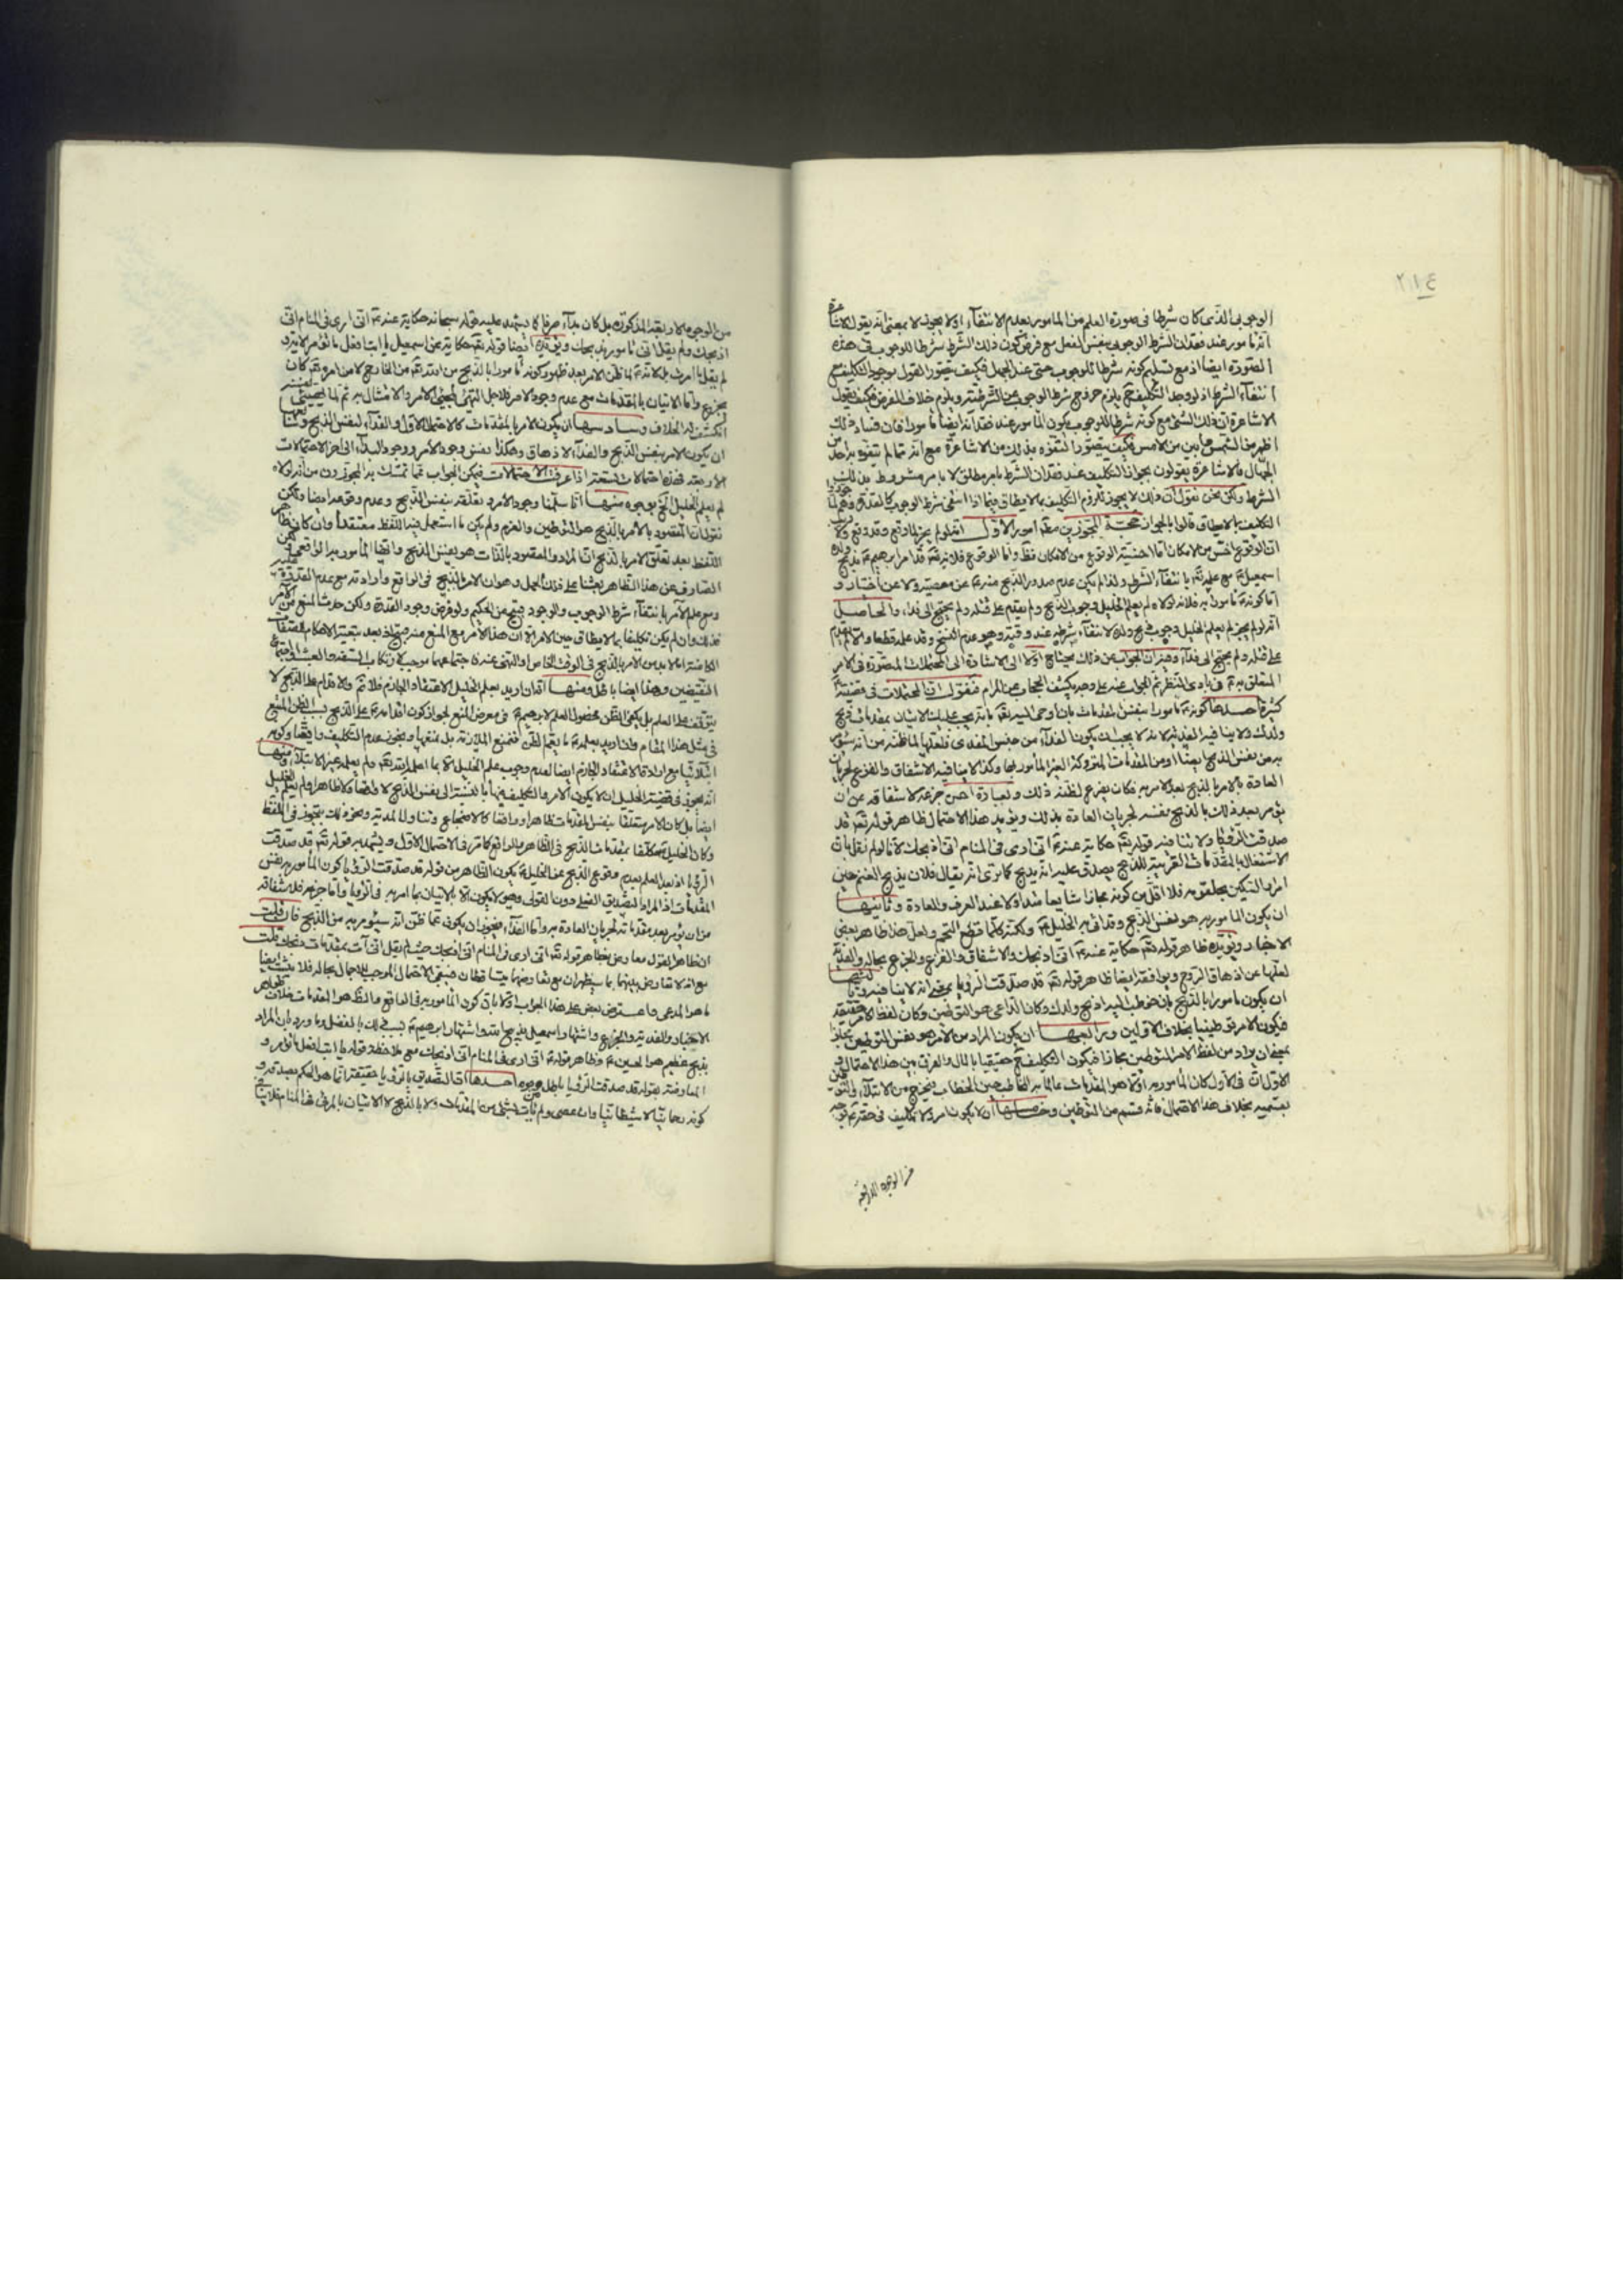 ٢١٤
الوجوبى الذى كان شرطا فى صورة العلم من المامور بعدم الانتفاء اولا يجوز لا بمعنى انه يقول الاشاعرة
انه مامور عند فقدان الشرط الوجوبى بنفس الفعل مع فرض كون ذلك الشرط شرطا للوجوب فى هذه
الصورة ايضا اذ مع تسليم كونه شرطا للوجوب حتى عند الجهل فكيف يتصور القول بوجود التكليف مع
انتفاء الشرط اذ لو وجد التكليف ح يلزم خروج شرط الوجوب عن الشرطية ويلزم خلاف الفرض فكيف يقول
الاشاعرة ان ذلك الشئ مع كونه شرطا للوجوب يكون المامور عند فقدانه ايضا مامورا فان فساد ذلك
اظهر من الشمس وابين من الامس فكيف يتصور التفوه بذلك من الاشاعرة مع انه مما لم يتفوه به احد من
الجهال فالاشاعرة يقولون بجواز التكليف عند فقدان الشرط بامر مطلق لا بامر مشروط بذلك
الشرط ولكن نحن نقول ان ذلك لا يجوز للزوم التكليف بما لا يطاق فيما اذا انتفى شرط الوجوب كالقدرة
التكليف بما لا يطاق قالوا بالجواز حجة المجوزين امور الاول انه لو لم يجز لما وقع وقد وقع
ان الوقوع اخص من الامكان اما اخصية الوقوع من الامكان فظ واما الوقوع فلانه تعالى قد امر ابرهيم ع بذبح ولده
اسمعيل ع مع علمه تعالى بانتفاء الشرط ولذا لم يكن عدم صدور الذبح منه ع عن معصية ولا عن اختيار و
اما كونه ع مامورا به فلانه لولاه لم يعلم الخليل وجوب الذبح ولم يقدم على قتله ولم يحتج الى فداء والحاصل
انه لو لم يجز لم يعلم الخليل وجوب ذبح ولده لانتفاء شرطه عند وقته وهو عدم النسخ وقد علمه قطعا والا لم يقدم
على قتله ولم يحتج الى فداء وفيه ان الجواب عن ذلك يحتاج اولا الى الاشارة الى المحتملات المتصورة فى الامر
المتعلق به ع فى بادى النظر ثم الجواب عنه على وجه يكشف الحجاب عن المرام فنقول ان المحتملات فى قضيته
كثيرة احدها كونه ع مامورا بنفس المقدمات بان اوحى اليه تعالى بانه يجب عليك الاتيان بمقدمات ذبح
ولدك ولا ينافيه الفدية لانه لا يجب ان يكون الفداء من جنس المفدى فلعلها لما ظنه من انه سيؤمر
به من نفس الذبح ايضا او من المقدمات المتروكة الغير المامور بها وكذا لا ينافيه الاشفاق والفزع لجريان
العادة بالامر بالذبح بعد الامر به فكان يفزع لظنه ذلك وبعبارة اخرى جزعه لاشفاقه عن ان
يؤمر بعد ذلك بالذبح نفسه لجريان العادة بذلك ويؤيد هذا الاحتمال ظاهر قوله تعالى قد
صدقت الرؤيا ولا ينافيه قوله تعالى حكاية عنه ع انى ارى فى المنام انى اذبحك لانا لو لم نقل بان
الاشتغال بالمقدمات القريبة للذبح يصدق عليه انه يذبح كما ترى انه يقال فلان يذبح الغنم حين
امر بالسكين بحلقومه فلا اقل من كونه مجازا شايعا متداولا عند العرف والعادة وثانيها
ان يكون المامور به هو نفس الذبح وقد اتى به الخليل ع ولكنه كلما قطع التحم ولعل هذا ظاهر بعض
الاخبار ويؤيده ظاهر قوله تعالى حكاية عنه ع انى اذبحك والاشفاق والفزع والجزع بحاله والفدية
لعلها عن اذهاق الروح ويوافقه ايضا ظاهر قوله تعالى قد صدقت الرؤيا بمعنى انه لا ينافيه وثالثها
ان يكون مامورا بالذبح بان خوطب اليه اذبح ولدك وكان الداعى هو التوطين وكان لفظ الامر حقيقة
فيكون الامر توطينيا بخلاف الاولين ورابعها ان يكون المراد من الامر هو نفس التوطين مجازا
بمعنى ان يراد من لفظ الامر التوطين مجازا فيكون التكليف ح حقيقيا بالمال والفرق بين هذا الاحتمال و
الاول ان فى الاول كان المامور به اولا هو المقدمات عالما به المخاطب حين الخطاب فيخرج من الابتلاء والتوطين
بقسميه بخلاف هذا الاحتمال فانه قسم من التوطين وخامسها ان لا يكون امر ولا تكليف فى حقه ع بوجه
من الوجوه الاربعة
من الوجوه الاربعة المذكورة بل كان بداء صرفا كما يشهد عليه قوله سبحانه حكاية عنه ع انى ارى فى المنام انى
اذبحك ولم يقل انى مامور بذبحك ويؤيده ايضا قوله تعالى حكاية عن اسمعيل يا ابت افعل ما تؤمر لانه
لم يقل ما امرت بل لانه ع لما ظن الامر بعد ظهور كونه مامورا بالذبح من الله تعالى من الخارج لا من امره تعالى كان
يجزع واما الاتيان بالمقدمات مع عدم وجود الامر فلاجل التهيؤ لمجئ الامر والامتثال به ثم لما
انكشف له الخلاف وسادسها ان يكون الامر بالمقدمات كالاحتمال الاول والفداء لنفس الذبح وسابعها
ان يكون الامر بنفس الذبح والفداء لاذهاق وهكذا بفرض وجود الامر ووجود البداء الى اخر الاحتمالات
الاربعة فهذه احتمالات تسعة اذا عرفت الاحتمالات فيمكن الجواب عما تمسك به المجوزون من انه لولاه
لم يعلم الخليل الخ بوجوه منها انا سلمنا وجود الامر وتعلقه بنفس الذبح وعدم وقوعه ايضا ولكن
نقول ان المقصود بالامر بالذبح هو التوطين والعزم ولم يكن ما استعمل فيه اللفظ معتقدا وان كان ظاهر
اللفظ بعد تعلق الامر بالذبح ان المراد والمقصود بالذات هو نفس الذبح وانه المامور به الواقعى ولكن
الصارف عن هذا الظاهر بعثنا على ذلك الحمل وهو ان الامر بالذبح فى الواقع وارادته مع عدم القدرة
ومع علم الآمر بانتفاء شرط الوجوب والوجود قبيح عن الحكيم ولو فرض وجود القدرة ولكن حدث المنع من الآمر
فذلك وان لم يكن تكليفا بما لا يطاق حين الامر الا ان هذا الامر مع المنع منه قبيح اذ بعد تبعية الاحكام للصفات
الكامنة لا بد من الامر بالذبح فى الوقت الخاص والنهى عنه ان اجتماعهما موجب لارتكاب السفه والعبث او اجتماع
النقيضين وهذا ايضا باطل ومنها انه ان اريد بعلم الخليل الاعتقاد الجازم فلا ثم والاقدام على الذبح لا
يتوقف على العلم بل يكفى الظن بحصول العلم لابرهيم ع فى معرض المنع لجواز كون اقدامه ع على الذبح بسبب الظن المتبع
فى مثل هذا المقام وان اريد بعلمه ع ما يعم الظن فنمنع الملازمة بل نمنعها ويجوز عدم التكليف واقعا وكونه
ابتلائيا مع ارادة الاعتقاد الجازم ايضا لعدم وجوب علم الخليل الا بما اعلمه الله تعالى ولم يعلمه غير الابتلاء ومنها
انه يجوز فى قضية الخليل ان لا يكون الامر والتكليف فيها بالنسبة الى نفس الذبح لا واقعا ولا ظاهرا ولم يعلم الخليل
ايضا بل كان الامر متعلقا بنفس المقدمات ظاهرا وواقعا كالاضجاع وتناول المدية ونحو ذلك بتجوز فى اللفظ
وكان الخليل ع مكلفا بمقدمات الذبح فى الظاهر والواقع كما مر فى الاحتمال الاول ويشهد به قوله تعالى قد صدقت
الرؤيا اذ بعد العلم بعدم وقوع الذبح عن الخليل ع يكون الظاهر من قوله قد صدقت الرؤيا كون المامور به نفس
المقدمات اذ المراد التصديق الفعلى دون القولى وهو لا يكون الا بالاتيان بما امر به فى الرؤيا واما جزعه فلاشفاقه
من ان يؤمر بعد مقدماته لجريان العادة به واما الفداء فيجوز ان يكون عما ظن انه سيؤمر به من الذبح فان قلت
ان ظاهر القول معارض بظاهر قوله تعالى انى ارى فى المنام انى اذبحك حيث لم يقل انى آت بمقدمات ذبحك قلت
مع انه لا تعارض بينهما بما سيظهر ان مع تعارضهما يتساقطان فيبقى الاحتمال الموجب للاجمال بحاله فلا يثبت ايضا
ما هو المدعى واعترض بعض على هذا الجواب اولا بان كون المامور به فى الواقع والظاهر المقدمات خلاف ظواهر
الاخبار والفدية والجزع واشتهار اسمعيل بذبيح الله واشتهار ابرهيم ع بسبب ذلك بالفضل وما ورد بان المراد
بذبح عظيم هو الحسين ع وظاهر قوله تعالى انى ارى فى المنام انى اذبحك مع ملاحظة قوله يا ابت افعل ما تؤمر و
المعارضة بقوله قد صدقت الرؤيا باطل بوجوه احدها ان التصديق بالرؤيا حقيقة انما هو الحكم بصدقه و
كونه رحمانيا لا شيطانيا وان عصى ولم يات بشئ من المقدمات ولا بالذبح لا الاتيان بالمرئى فى المنام